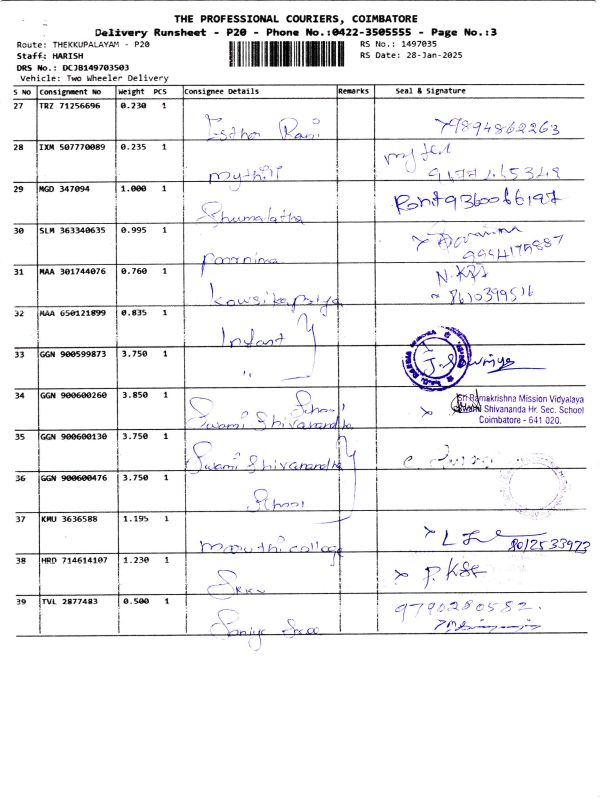 THE PROFESSIONAL COURIERS, COIMBATORE
Delivery Runsheet - P20 - Phone No.:0422-3505555 - Page No.:3
Route: THEKKUPALAYAM - P20
RS No.: 1497035
Staff: HARISH
RS Date: 28-Jan-2025
DRS No.: DCJB149703503
Vehicle: Two Wheeler Delivery
S No Consignment No Weight PCS Consignee Details Remarks Seal & Signature
27 TRZ 71256696 0.230 1
Esther Rani 9894862263
28 IXM 507770089 0.235 1
mythili
29 MGD 347094 1.000 1
Rohit 9360066197
30 SLM 363340635 0.995 1
Poornima 9994175887
31 MAA 301744076 0.760 1
Kowsikapriya 8610399516
32 MAA 650121899 0.835 1
Infant
33 GGN 900599873 3.750 1
"
34 GGN 900600260 3.850 1
School
Swami Shivanandha
Sri Ramakrishna Mission Vidyalaya
Swami Shivananda Hr. Sec. School
Coimbatore - 641 020.
35 GGN 900600130 3.750 1
Swami Shivanandha
36 GGN 900600476 3.750 1
School
37 KMU 3636588 1.195 1
maruthi college 8012533973
38 HRD 714614107 1.230 1
39 TVL 2877483 0.500 1
9790280582.